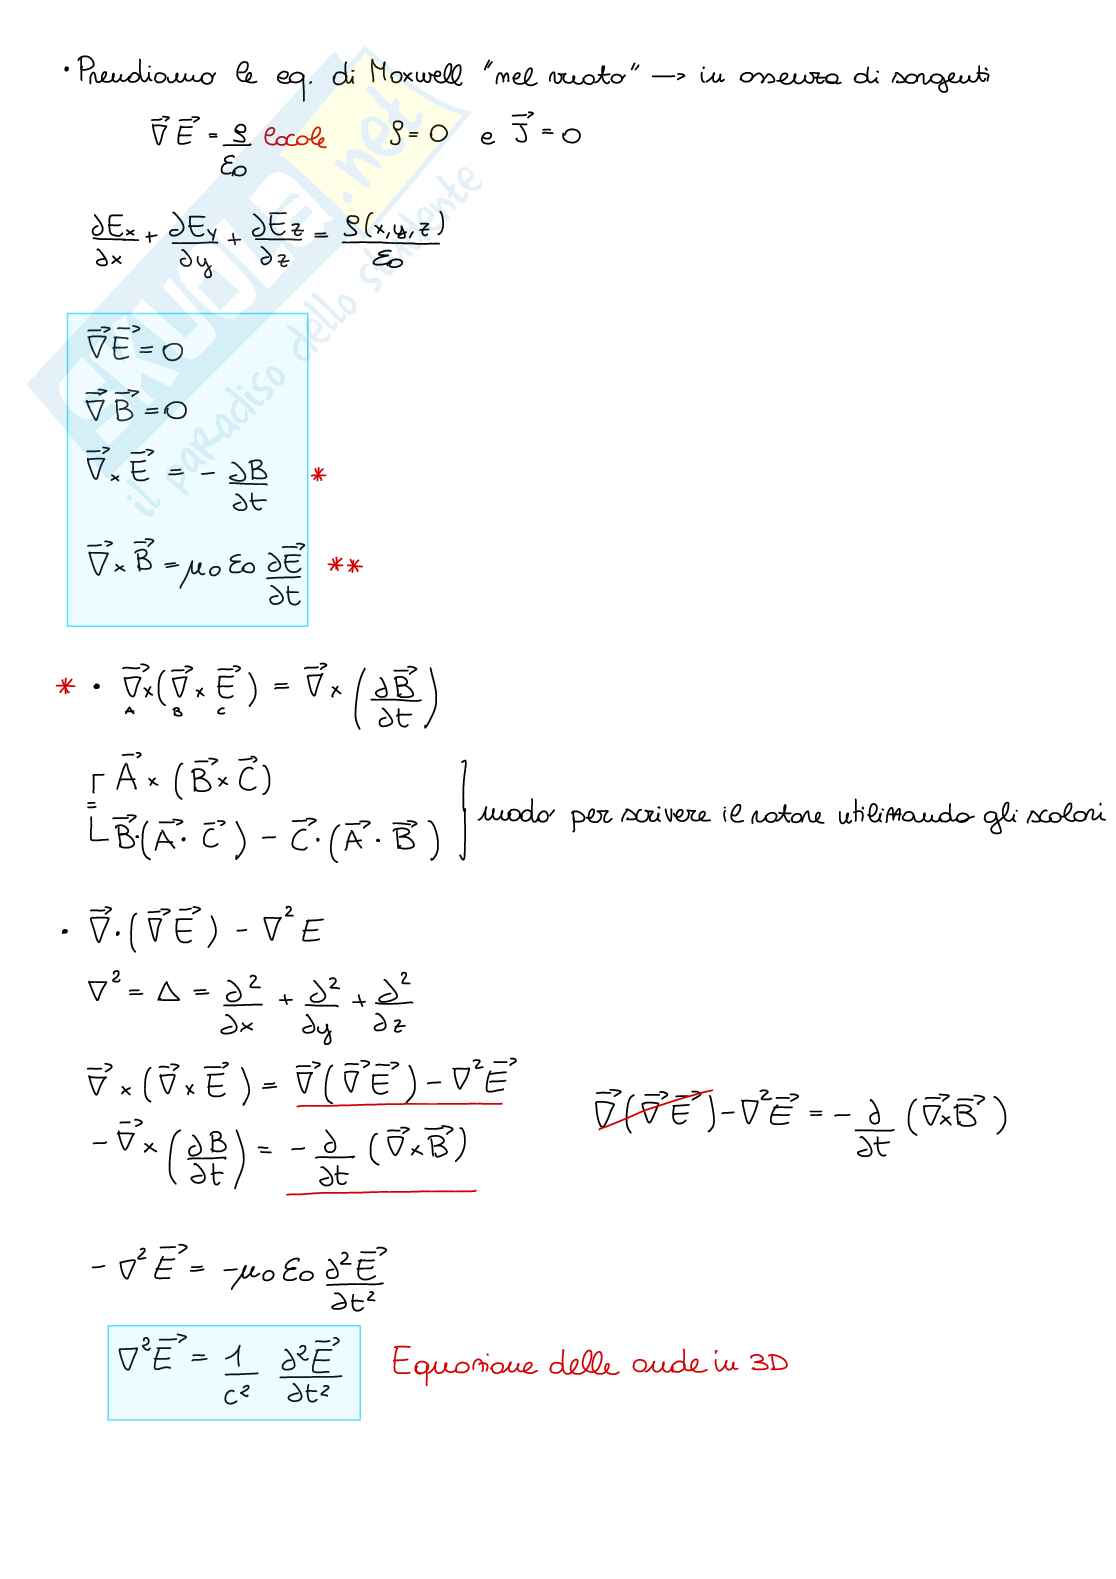 · Prendiamo le eq. di Maxwell "nel vuoto" → in assenza di sorgenti
∇⃗ E⃗ = ρ/ε₀ locale ρ = 0 e J⃗ = 0
∂Ex/∂x + ∂Ey/∂y + ∂Ez/∂z = ρ(x,y,z)/ε₀
∇⃗ E⃗ = 0
∇⃗ B⃗ = 0
∇⃗ × E⃗ = - ∂B/∂t *
∇⃗ × B⃗ = μ₀ ε₀ ∂E⃗/∂t **
* · ∇⃗ × (∇⃗ × E⃗) = ∇⃗ × (∂B⃗/∂t)
A B C
A⃗ × (B⃗ × C⃗)
= B⃗·(A⃗ · C⃗) - C⃗·(A⃗ · B⃗)
modo per scrivere il rotore utilizzando gli scalari
· ∇⃗·(∇⃗ E⃗) - ∇² E
∇² = Δ = ∂²/∂x + ∂²/∂y + ∂²/∂z
∇⃗ × (∇⃗ × E⃗) = ∇⃗(∇⃗ E⃗) - ∇² E⃗
∇⃗(∇⃗ E⃗) - ∇² E⃗ = - ∂/∂t (∇⃗ × B⃗)
- ∇⃗ × (∂B/∂t) = - ∂/∂t (∇⃗ × B⃗)
- ∇² E⃗ = - μ₀ ε₀ ∂²E⃗/∂t²
∇² E⃗ = 1/c² ∂²E⃗/∂t² Equazione delle onde in 3D
SKUOLA.net
il paradiso dello studente